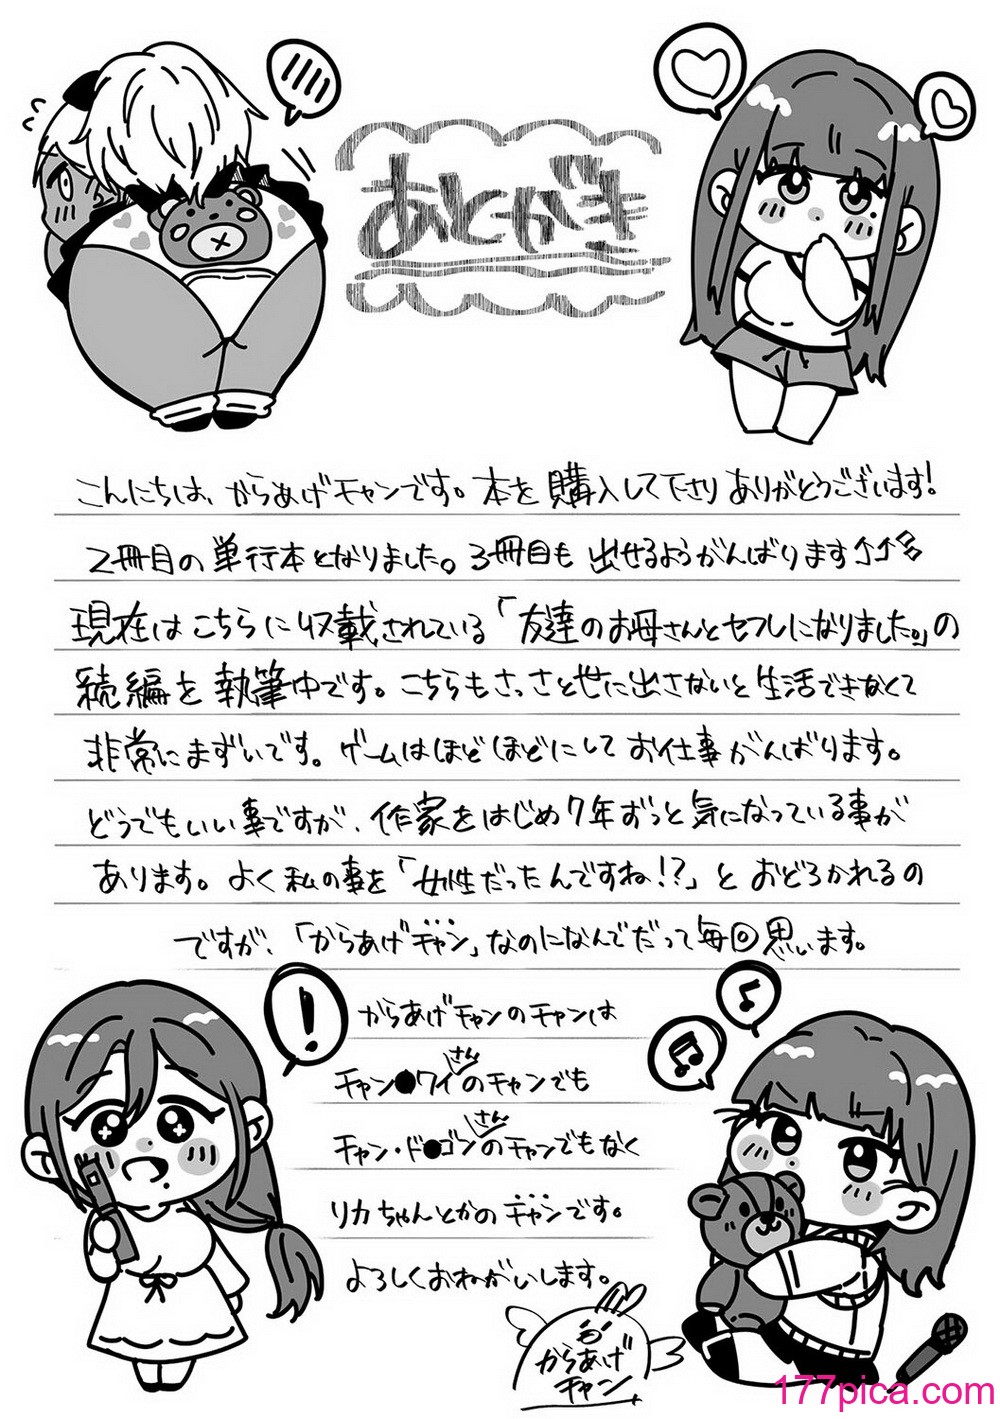 あとがき
こんにちは、からあげチャンです。本を購入して下さりありがとうございます!
2冊目の単行本となりました。3冊目も出せるようがんばります↑↑
現在はこちらに収載されている「友達のお母さんとセフレになりました。」の
続編を執筆中です。こちらもさっさと世に出さないと生活できなくて
非常にまずいです。ゲームはほどほどにしてお仕事がんばります。
どうでもいい事ですが、作家をはじめ7年ずっと気になっている事が
あります。よく私の事を「女性だったんですね!?」とおどろかれるの
ですが、「からあげチャン」なのになんでだって毎回思います。
!
からあげチャンのチャンは
チャン●ワイさんのチャンでも
チャン・ド●ゴンさんのチャンでもなく
リカちゃんとかのチャンです。
よろしくおねがいします。
からあげ
チャン
177pica.com